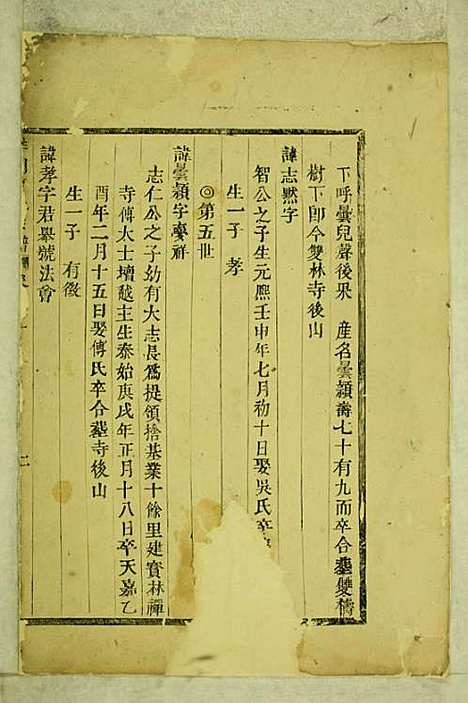 下呼曇兒聲後果 產名曇穎壽七十有九而卒合塟雙檮
樹下卽今雙林寺後山
諱志默字
智公之子生元熈壬申年七月初十日娶吳氏卒
生一子 孝
第五世
諱曇穎字慶祥
志仁公之子幼有大志長爲提領捨基業十餘里建寳林禪
寺傅大士壇越主生泰始庚戌年正月十八日卒天嘉乙
酉年二月十五日娶傅氏卒合塟寺後山
生一子 有徵
諱孝字君舉號法會